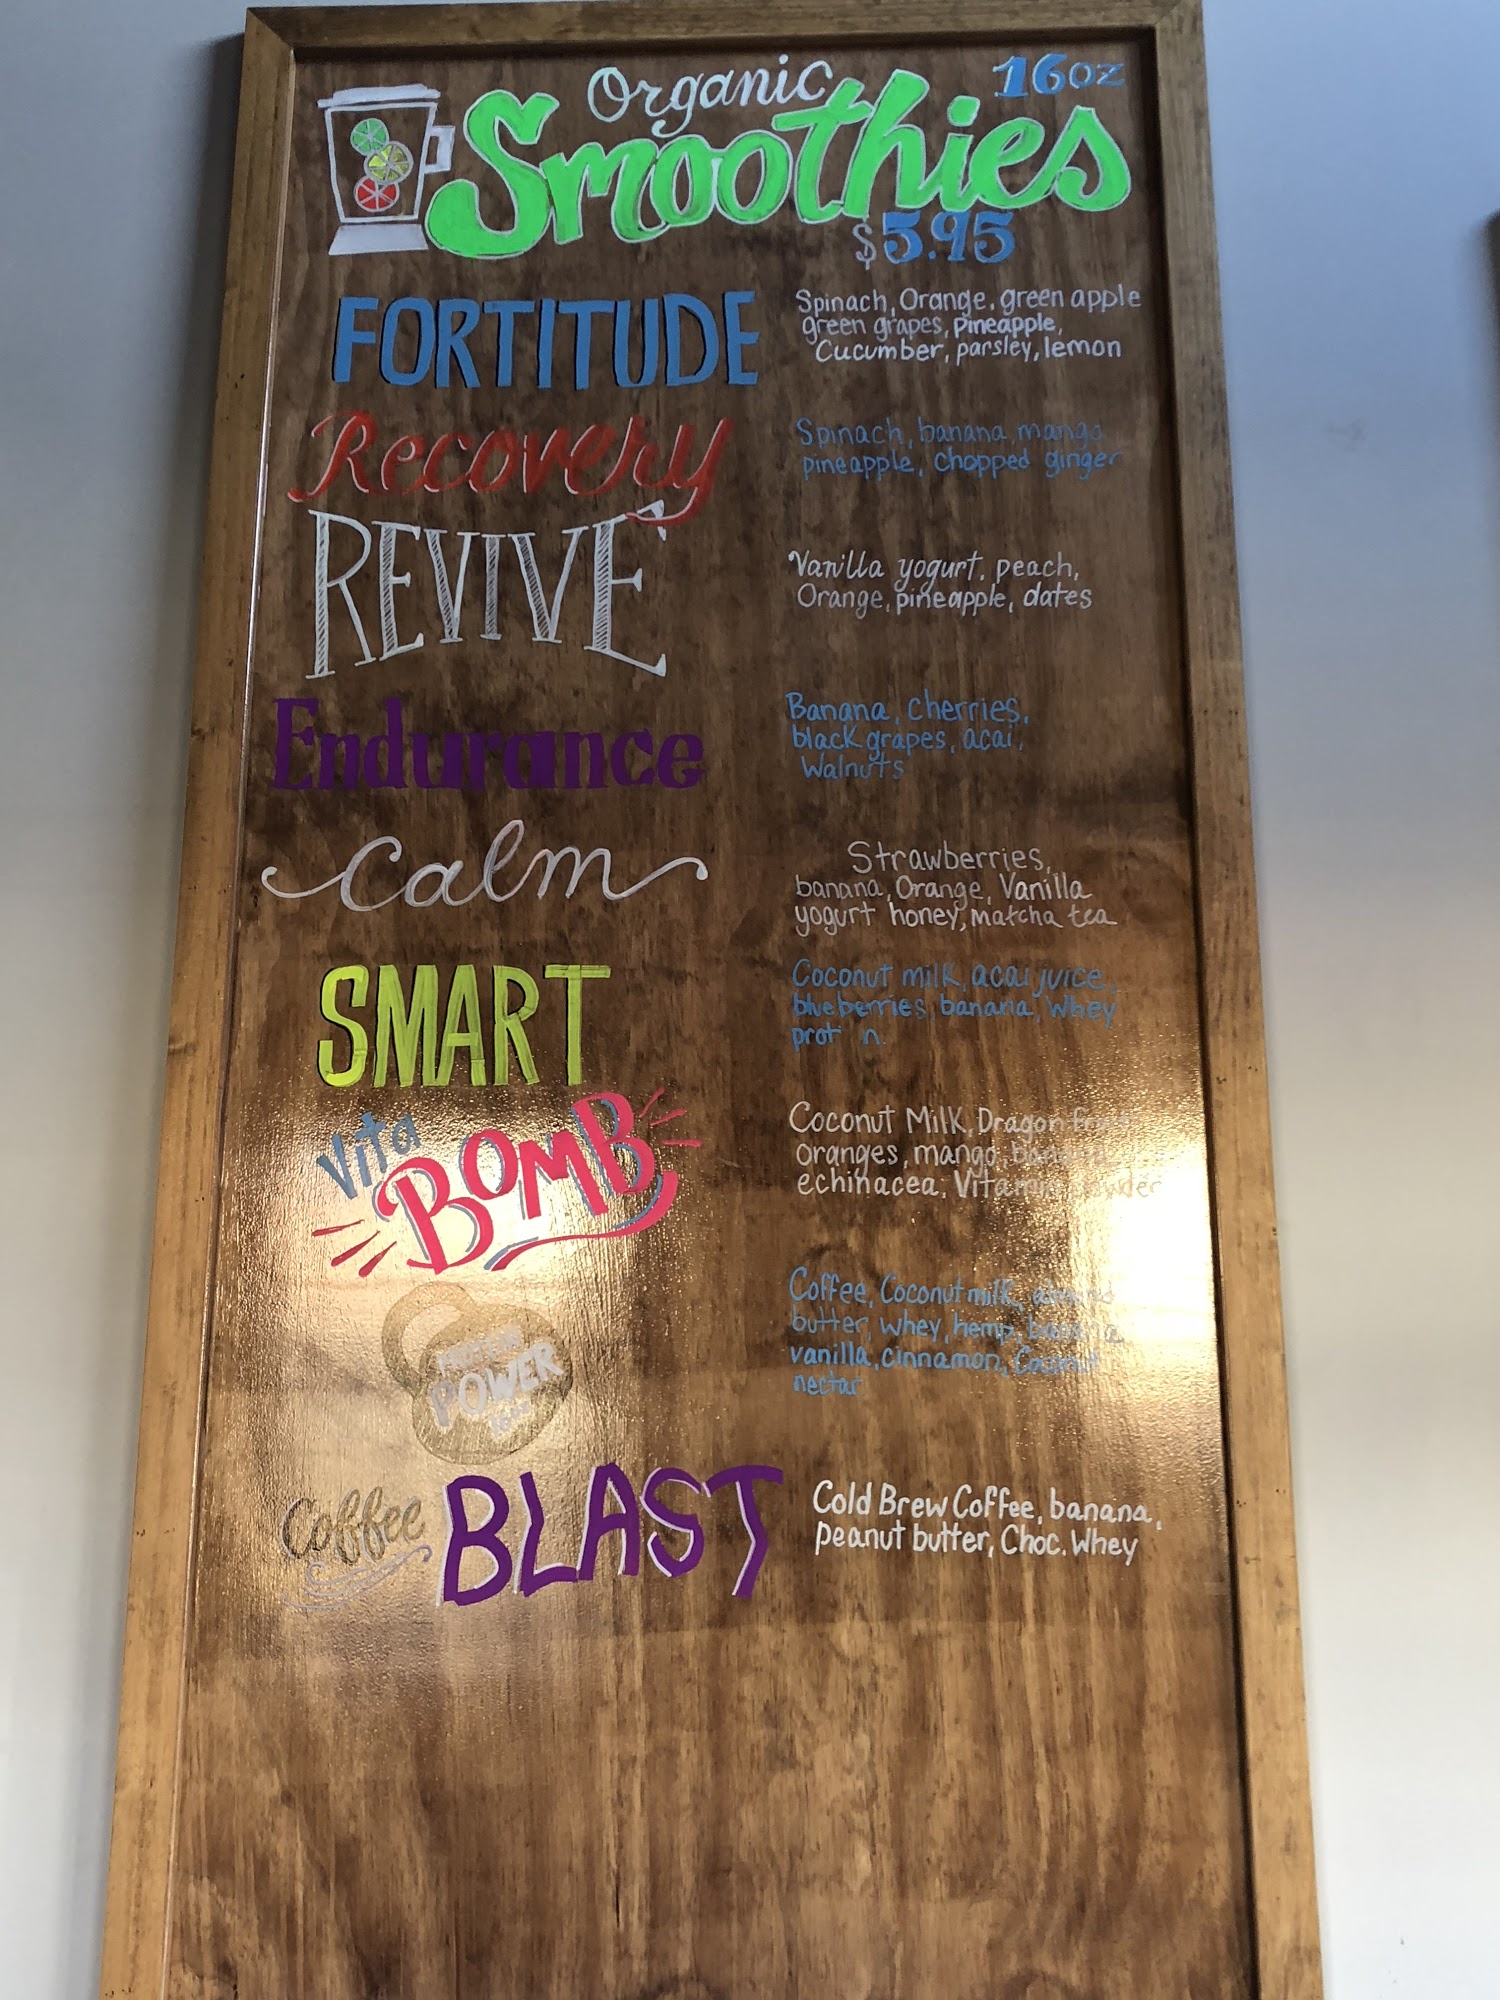 Organic 16oz
Smoothies
$5.95
FORTITUDE
Spinach, Orange, green apple
green grapes, pineapple,
Cucumber, parsley, lemon
Recovery
Spinach, banana, mango
pineapple, chopped ginger
REVIVE
Vanilla yogurt, peach,
Orange, pineapple, dates
Endurance
Banana, cherries,
black grapes, acai,
Walnuts
Calm
Strawberries,
banana, Orange, Vanilla
yogurt honey, matcha tea
SMART
Coconut milk, acai juice,
blueberries, banana, Whey
prot n.
Vita
BOMB
Coconut Milk, Dragon fruit
oranges, mango,
echinacea, Vitamin
PROTEIN
POWER
16oz
Coffee, Coconut milk, almond
butter, whey, hemp, banana
vanilla, cinnamon, Coconut
nectar
Coffee BLAST
Cold Brew Coffee, banana,
peanut butter, Choc. Whey